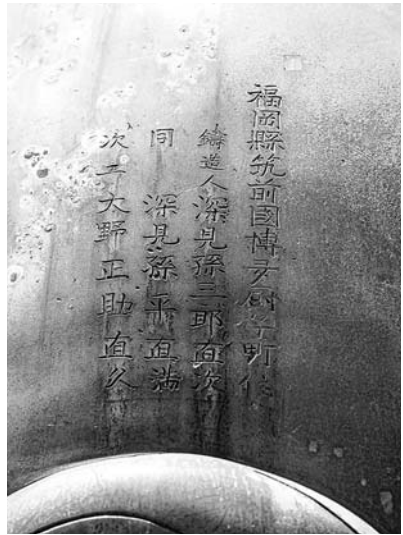 福岡縣筑前國博多
鑄造人 深見孫三郎直次
同 深見孫平直満
次工 大野正助直久